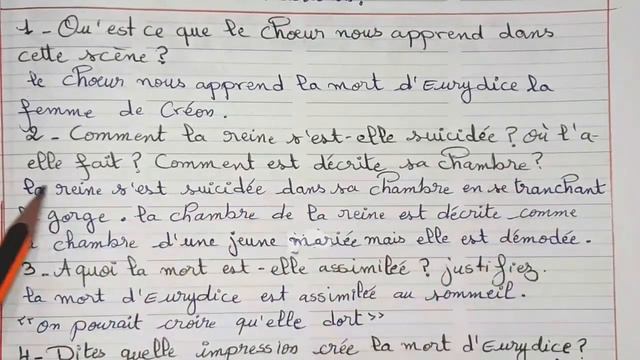 1 - Qu'est ce que le chœur nous apprend dans
cette scène ?
le chœur nous apprend la mort d'Eurydice la
femme de Créon.
2 - Comment la reine s'est-elle suicidée ? Où l'a-
elle fait ? Comment est décrite sa chambre ?
la reine s'est suicidée dans sa chambre en se tranchant
gorge. la chambre de la reine est décrite comme
chambre d'une jeune mariée mais elle est démodée.
3 - A quoi la mort est-elle assimilée ? justifiez.
la mort d'Eurydice est assimilée au sommeil.
"on pourait croire qu'elle dort"
4 - Dites quelle impression crée la mort d'Eurydice ?